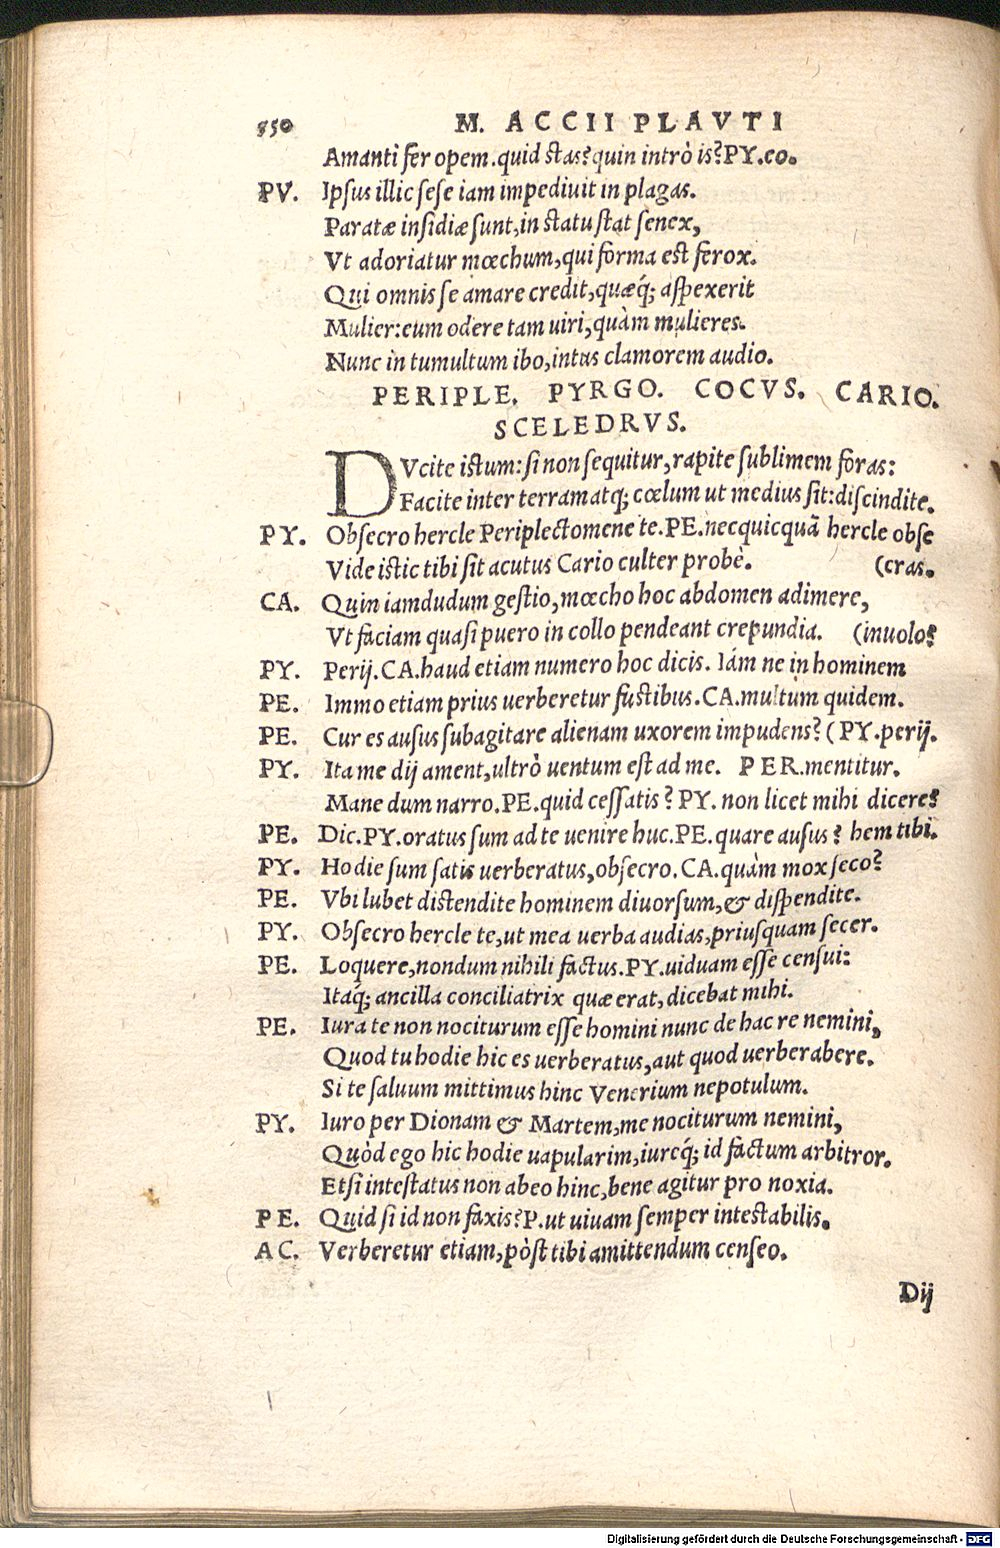 850 M. ACCII PLAVTI
Amanti fer opem. quid stas? quin intrò is? PY. eo.
PV. Ipsus illic sese iam impediuit in plagas.
Paratæ insidiæ sunt, in statu stat senex,
Vt adoriatur mœchum, qui forma est ferox.
Qui omnis se amare credit, quæq́; aspexerit
Mulier: eum odere tam uiri, quàm mulieres.
Nunc in tumultum ibo, intus clamorem audio.
PERIPLE. PYRGO. COCVS. CARIO.
SCELEDRVS.
DVcite istum: si non sequitur, rapite sublimem foras:
Facite inter terram atq; cœlum ut medius sit: discindite.
PY. Obsecro hercle Periplectomene te. PE. nec quicquã hercle obse
Vide istic tibi sit acutus Cario culter probè. (cras.
CA. Quin iamdudum gestio, mœcho hoc abdomen adimere,
Vt faciam quasi puero in collo pendeant crepundia. (inuolo?
PY. Perij. CA. haud etiam numero hoc dicis. Iám ne in hominem
PE. Immo etiam prius uerberetur fustibus. CA. multum quidem.
PE. Cur es ausus subagitare alienam uxorem impudens? (PY. perij.
PY. Ita me dij ament, ultrò uentum est ad me. PER. mentitur.
Mane dum narro. PE. quid cessatis? PY. non licet mihi dicere?
PE. Dic. PY. oratus sum ad te uenire huc. PE. quare ausus? hem tibi.
PY. Hodie sum satis uerberatus, obsecro. CA. quàm mox seco?
PE. Vbi lubet distendite hominem diuorsum, & dispendite.
PY. Obsecro hercle te, ut mea uerba audias, priusquam secer.
PE. Loquere, nondum nihili factus. PY. uiduam esse censui:
Itaq́; ancilla conciliatrix quæ erat, dicebat mihi.
PE. Iura te non nociturum esse homini nunc de hac re nemini,
Quod tu hodie hic es uerberatus, aut quod uerberabere.
Si te saluum mittimus hinc Venerium nepotulum.
PY. Iuro per Dionam & Martem, me nociturum nemini,
Quòd ego hic hodie uapularim, iureq́; id factum arbitror.
Et si intestatus non abeo hinc, bene agitur pro noxia.
PE. Quid si id non faxis? P. ut uiuam semper intestabilis.
AC. Verberetur etiam, pòst tibi amittendum censeo.
Dij
Digitalisierung gefördert durch die Deutsche Forschungsgemeinschaft - DFG